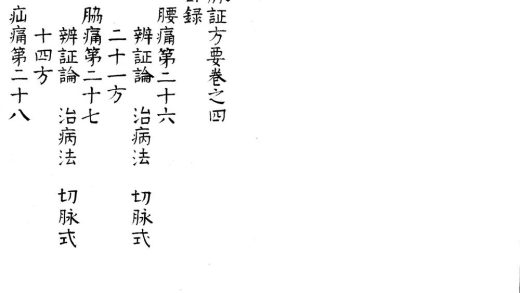 証方要卷之四
錄
腰痛第二十六
辨証論 治病法 切脉式
二十一方
脇痛第二十七
辨証論 治病法 切脉式
十四方
疝痛第二十八